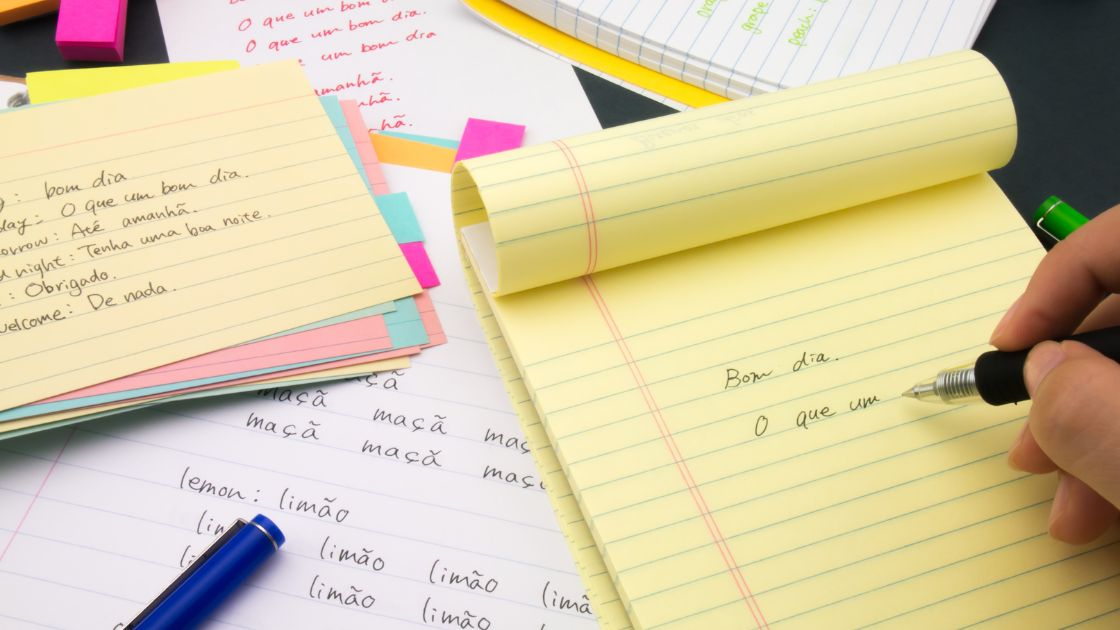 O que um bom
O que um bom dia.
um bom dia
amanhã.
bom dia
O que um bom dia.
: Até amanhã.
night: Tenha uma boa noite.
: Obrigado.
welcome: De nada.
maçã
maçã maçã
maçã maçã
lemon: limão
limão limão
limão limão
grape
peach:
Bom dia.
O que um